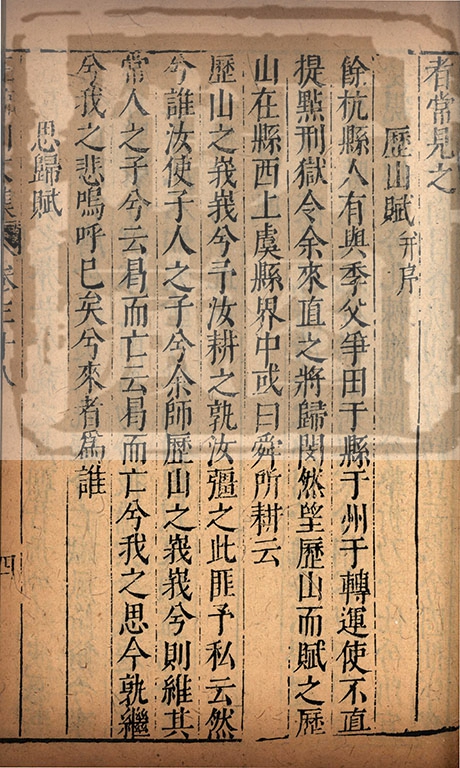 者常見之
歷山賦并序
餘杭縣人有與季父爭田于縣于州于轉運使不直
提點刑獄令余來直之將歸閔然望歷山而賦之歷
山在縣西上虞縣界中或曰舜所耕云
歷山之峩峩兮予汝耕之孰汝彊之此匪予私云然
兮誰汝使子人之子兮余師歷山之峩峩兮則維其
常人之子兮云曷而亡云曷而亡兮我之思今孰繼
兮我之悲嗚呼已矣兮來者爲誰
思歸賦
卷三十八
四